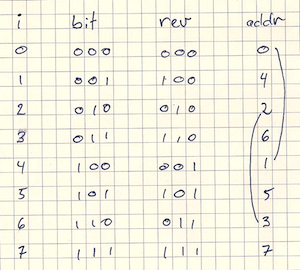 i bit rev addr
0 000 000 0
1 001 100 4
2 010 010 2
3 011 110 6
4 100 001 1
5 101 101 5
6 110 011 3
7 111 111 7